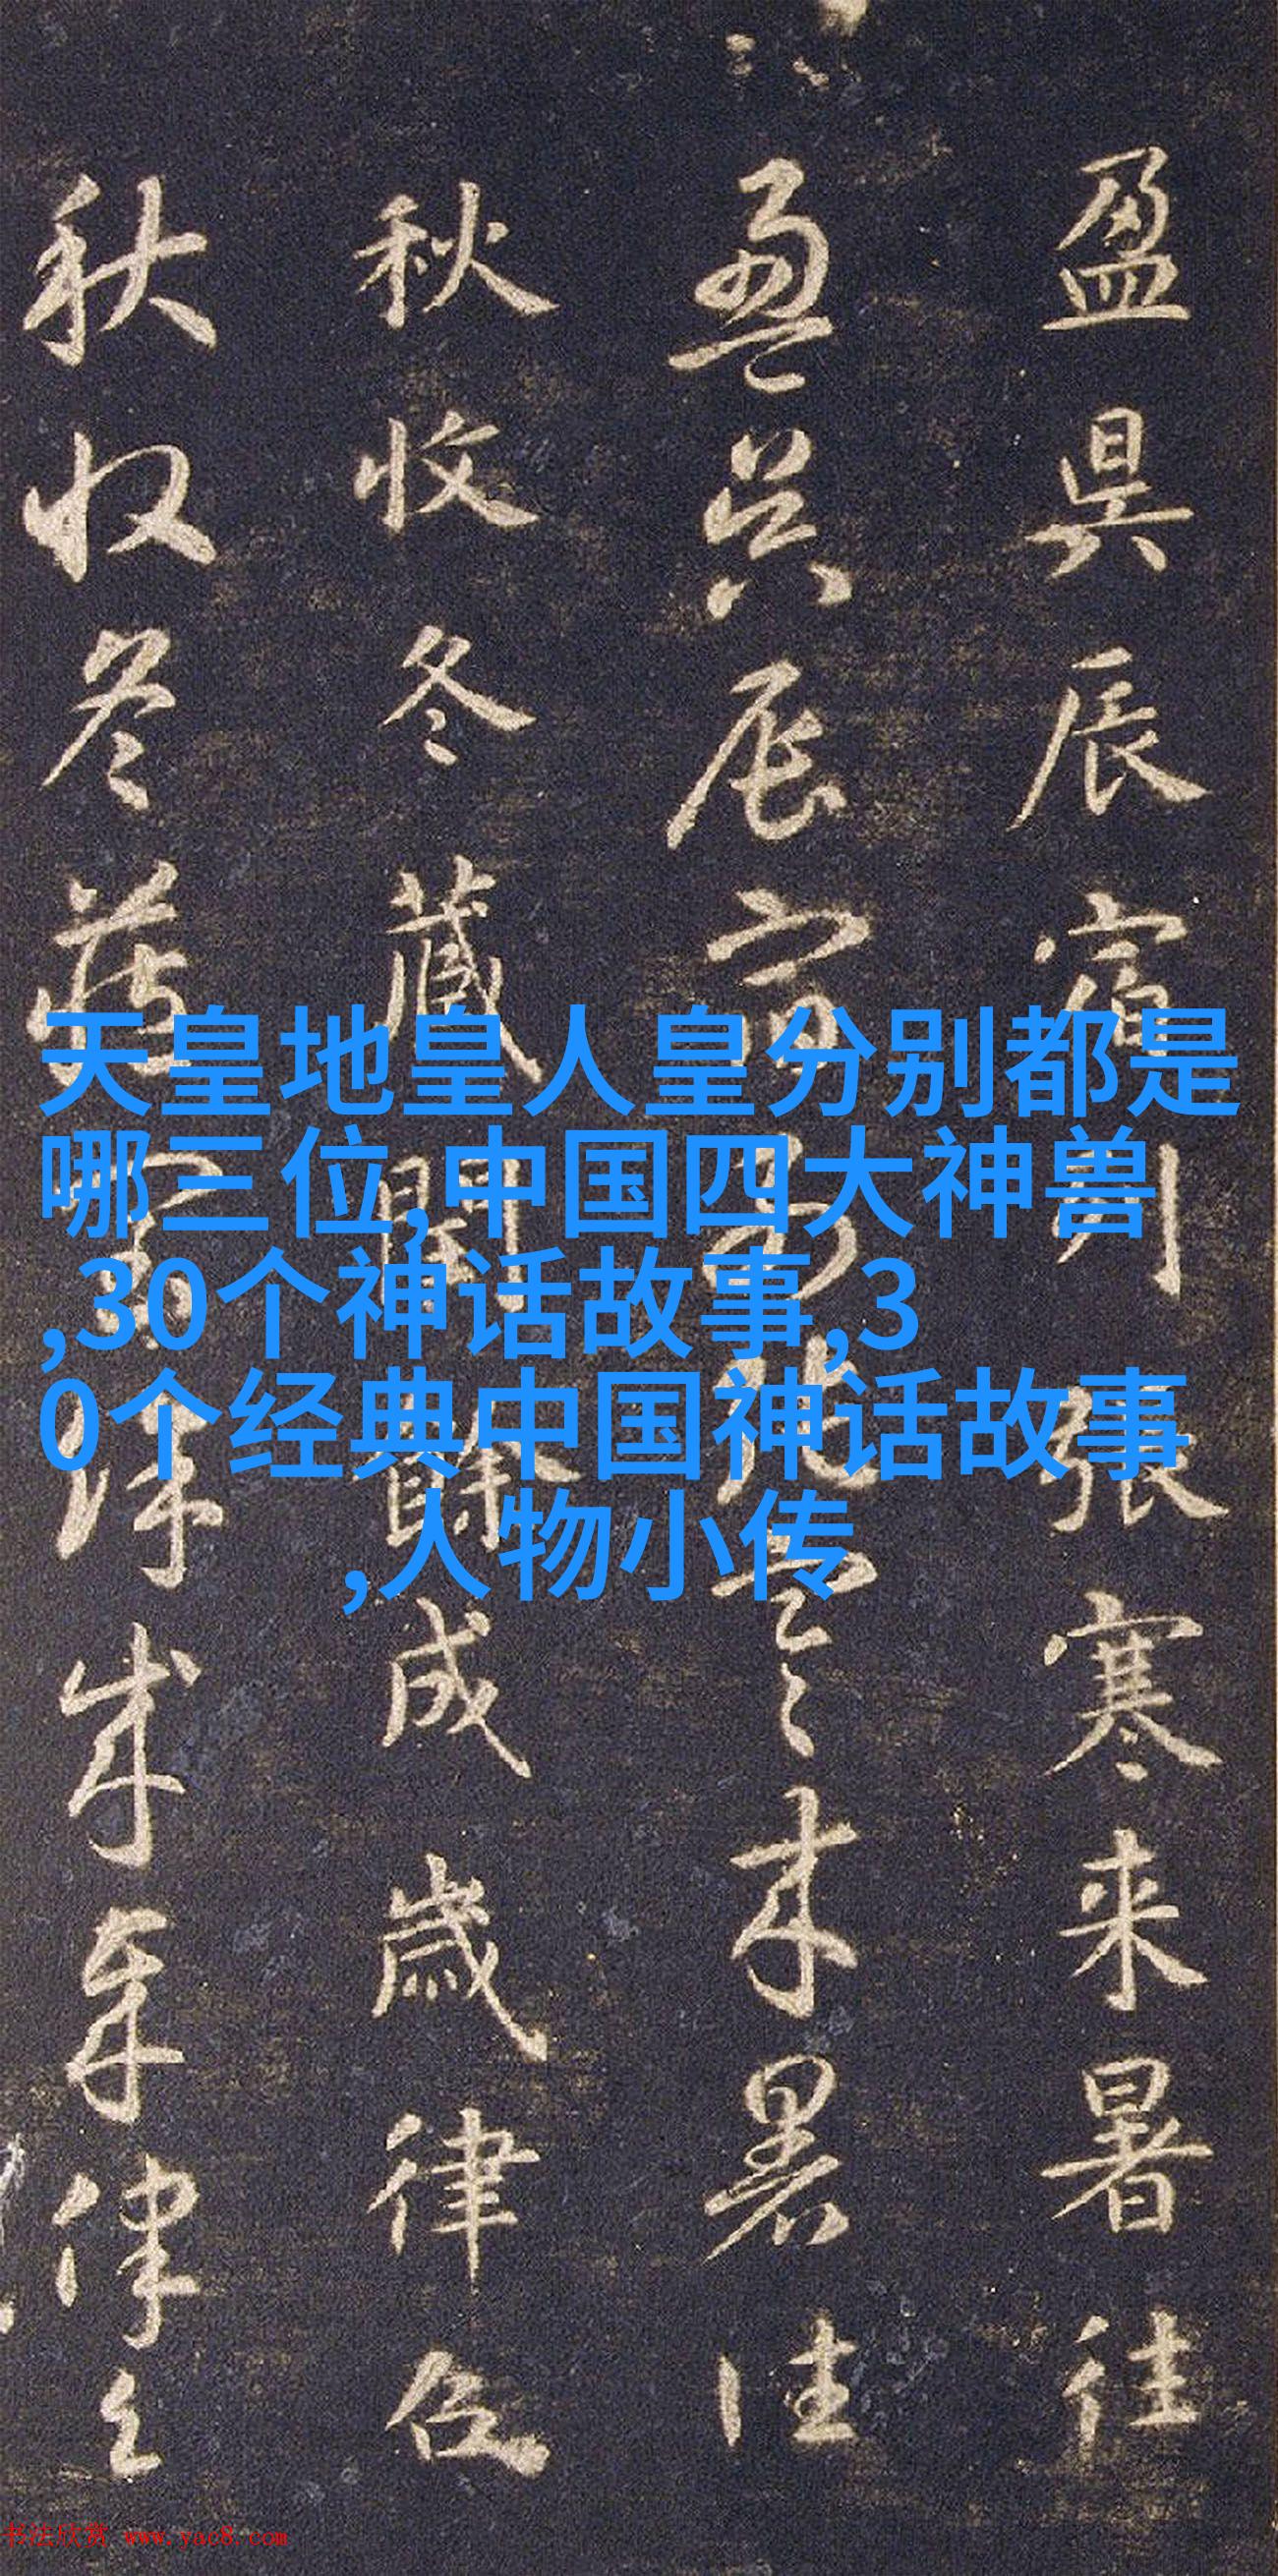 盈昃辰宿列張寒来暑往
盈昃辰宿列張寒来暑往
秋收冬藏閏餘成歲律召
秋收冬藏閏餘成歲律召
天皇地皇人皇分别都是
哪三位,中国四大神兽
,30个神话故事,3
0个经典中国神话故事
,人物小传
书法欣赏 www.yac8.com